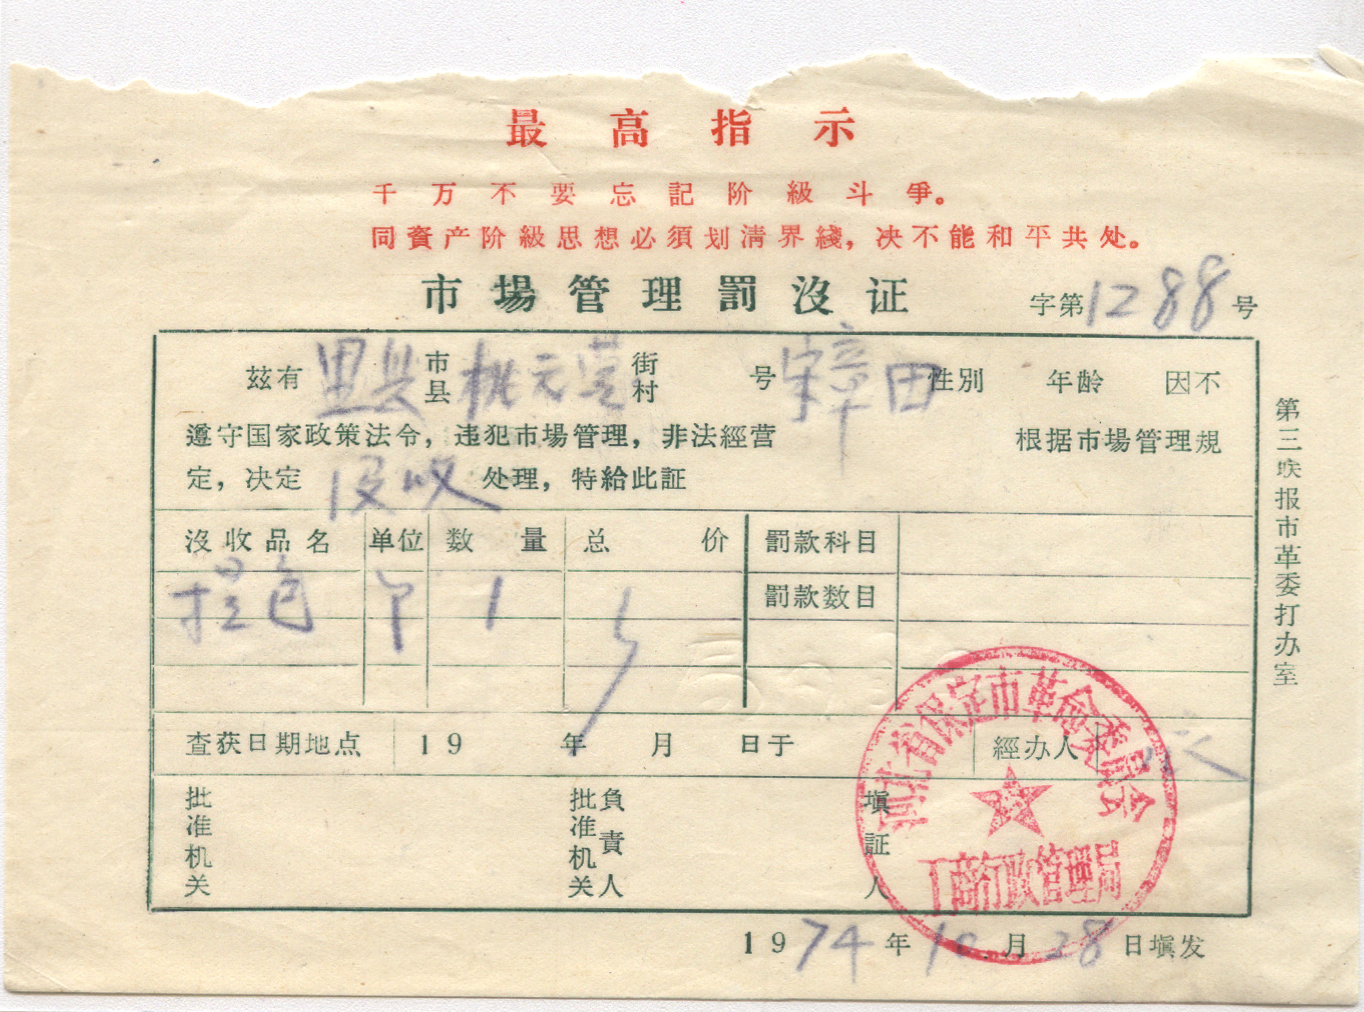 最高指示
千万不要忘記阶級斗爭。
同資产阶級思想必須划清界綫，决不能和平共处。
市場管理罰沒证
字第1288号
茲有 里县 市县 桃元营 街村 号 宋章田 性别 年龄 因不
遵守国家政策法令，违犯市場管理，非法經营 根据市場管理規
定，决定 没收 处理，特給此証
沒收品名 单位 数量 总价 罰款科目
提包 个 1
罰款数目
查获日期地点 19 年 月 日于 經办人
批准机关 批准机关負責人 塡証人
河北省保定市革命委員会
工商行政管理局
1974年10月28日塡发
第三联报市革委打办室